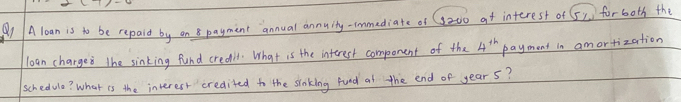 Q/ A loan is to be repaid by an 8 payment annual annuity-immediate of $200 at interest of 5%, for both the
loan charged the sinking fund credit. What is the interest component of the 4th payment in amortization
schedule? What is the interest credited to the sinking fund at the end of year 5?